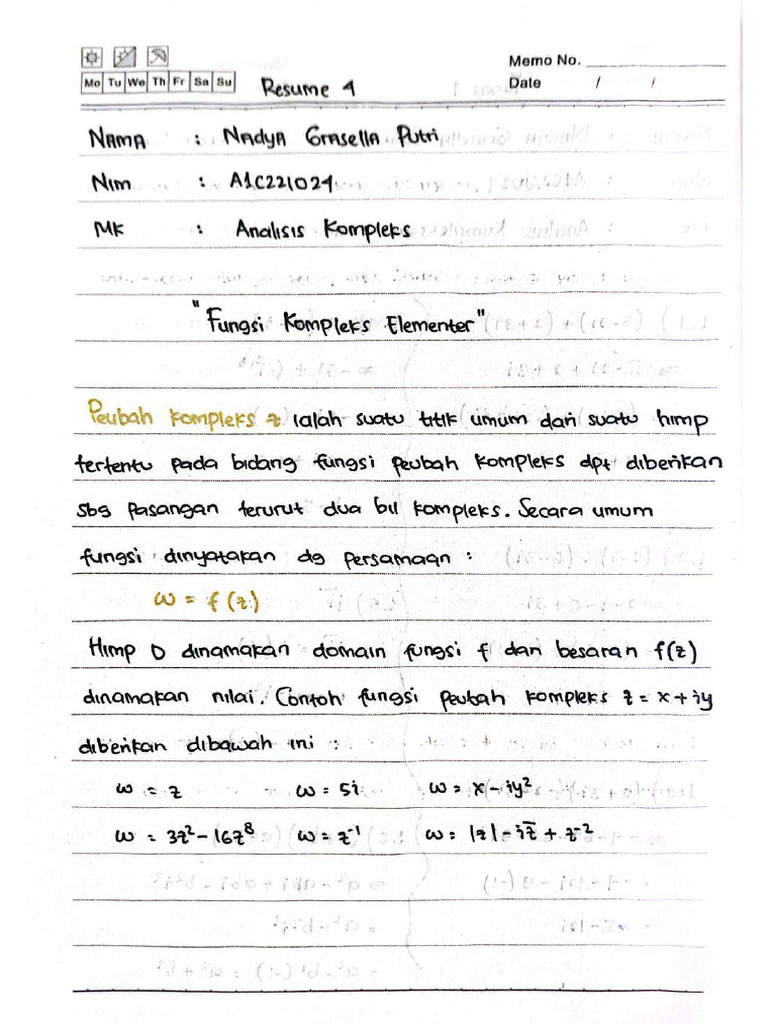 Memo No.
Mo Tu We Th Fr Sa Su
Resume 4
Date / /
NAMA : NADYA GRASELLA PUTRI
NIM : A1C221024
MK : Analisis Kompleks
"Fungsi Kompleks Elementer"
Peubah kompleks z ialah suatu titik umum dari suatu himp
tertentu pada bidang fungsi peubah kompleks dpt diberikan
sbg pasangan terurut dua bil kompleks. Secara umum
fungsi dinyatakan dg persamaan :
ω = f(z)
Himp D dinamakan domain fungsi f dan besaran f(z)
dinamakan nilai. Contoh fungsi peubah kompleks z = x + iy
diberikan dibawah ini :
ω = z ω = 5i ω = x - iy²
ω = 3z² - 16z⁸ ω = z⁻¹ ω = |z| - iz̅ + z⁻²